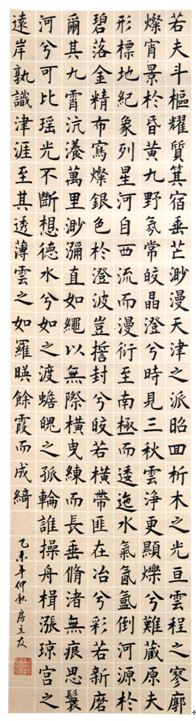 若夫斗樞耀質箕宿垂芒渺漫天津之派昭回析木之光亘雲程之寥廓
燦宵景於昏黃九野氛常皎晶澄兮時見三秋雲淨更顯爍兮難藏原夫
形標地紀象列星河自西流而漫衍至南極而透迤水氣氤氳倒河源於
碧落金精布寫燦銀色於澄波豈誓封兮皎若橫帶匪在冶兮彩若新磨
爾其九霄沆瀁萬里渺瀰直如繩以無際橫曳練而長垂脩渚無痕思鬟
河兮可比瑶光不斷想德水兮如之渡蟾魄之孤輪誰操舟楫漲瓊宮之
遠岸孰識津涯至其透薄雲之如羅暎餘霞而成綺
乙未年仲秋房立友